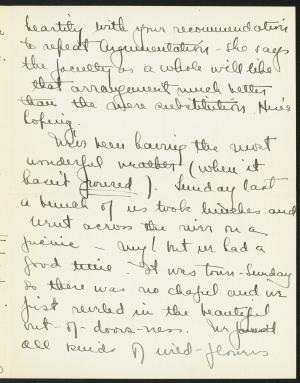 heartily with your recommendation
to repeat Argumentation - she says
the faculty as a whole will like
that arrangement much better
than the mere substitution. Here's
hoping.
We've been having the most
wonderful weather (when it
hasn't poured). Sunday last
a bunch of us took lunches and
went across the river on a
picnic - my! but we had a
good time. It was town-Sunday
so there was no chapel and we
just reveled in the beautiful
out-of-doors-ness. We found
all kinds of wild-flowers